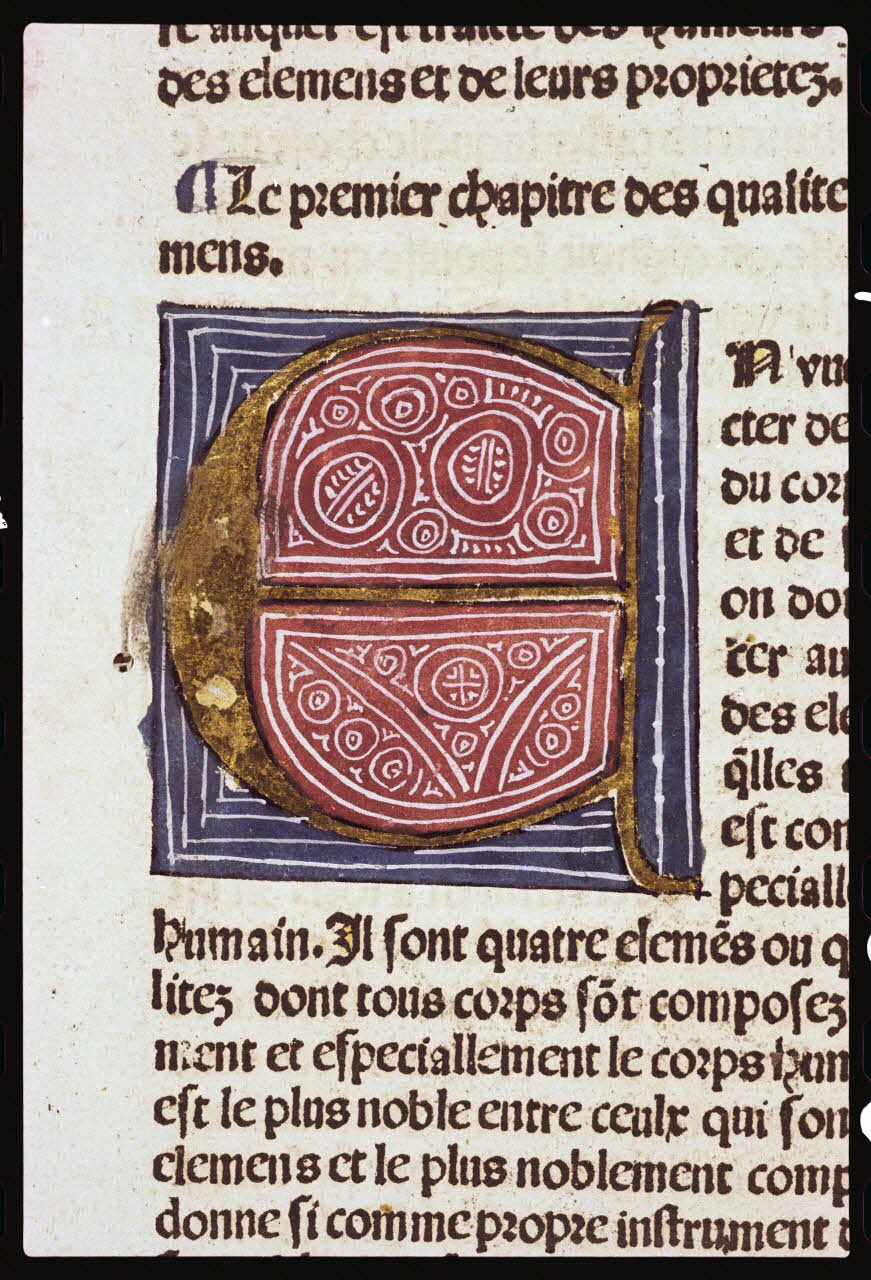 re auquel est traicte des humeurs
des elemens et de leurs proprietez.
¶ Le premier chapitre des qualite
mens.
E
N vue
cter de
du cor
et de
on do
ter au
des ele
q̃lles
est con
peciall
humain. Il sont quatre elemẽs ou q
litez dont tous corps sõt composez
ment et especiallement le corps hum
est le plus noble entre ceulx qui son
elemens et le plus noblement comp
donne si comme propre instrument d